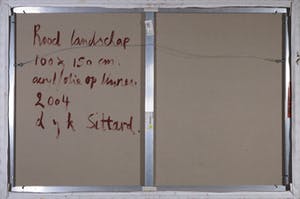 Rood landschap
100 x 150 cm.
acryl/olie op linnen
2004
d y k Sittard.